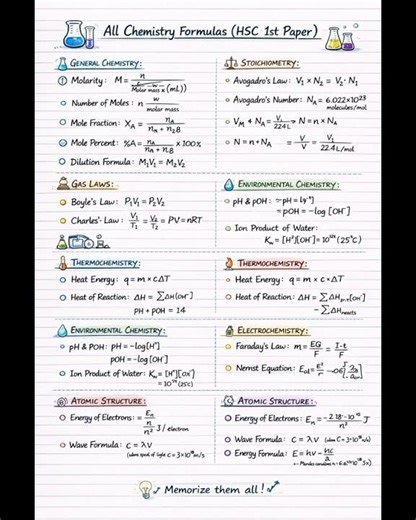 All Chemistry Formulas (HSC 1st Paper)
GENERAL CHEMISTRY:
Molarity: M = n / Molar mass × (mL)
Number of Moles: n w / molar mass
Mole Fraction: X_A = n_A / n_A + n_2B
Mole Percent: %A = n_A / n_A + n_B × 100%
Dilution Formula: M₁V₁ = M₂V₂
STOICHIOMETRY:
Avogadro's Law: V₁ × N₂ = V₂ · N₁
Avogadro's Number: N_A = 6.022×10²³
molecules/mol
N = n × N_A
22.4 L/mol
GAS LAWS:
Boyle's Law: P₁V₁ = P₂V₂
Charles' Law: V₁/T₁ = V₂/T₂ = PV = nRT
ENVIRONMENTAL CHEMISTRY:
pH & POH:
= pOH = −log [OH⁻]
Ion Product of Water:
THERMOCHEMISTRY:
Heat Energy: q = m × c ΔT
Heat of Reaction: ΔH = ΣΔH(OH⁻]
PH + POH = 14
THERMOCHEMISTRY:
Heat Energy: q = m × c × ΔT
Heat of Reaction: ΔH = ΣΔH
− ΣΔH reacts
ENVIRONMENTAL CHEMISTRY:
pH & POH: PH = −log[H⁺]
POH = −log [OH⁻]
Ion Product of Water:
ELECTROCHEMISTRY:
Faraday's Law: m = EG/F = I·t/F
Nernst Equation:
ATOMIC STRUCTURE:
Energy of Electrons: = E_n
J / electron
Wave Formula: c = λV
ATOMIC STRUCTURE:
Energy of Electrons: E_n = −2.18 · 10 / n² J
Wave Formula: c = λV
Energy Formula: E = hv −
Memorize them all!